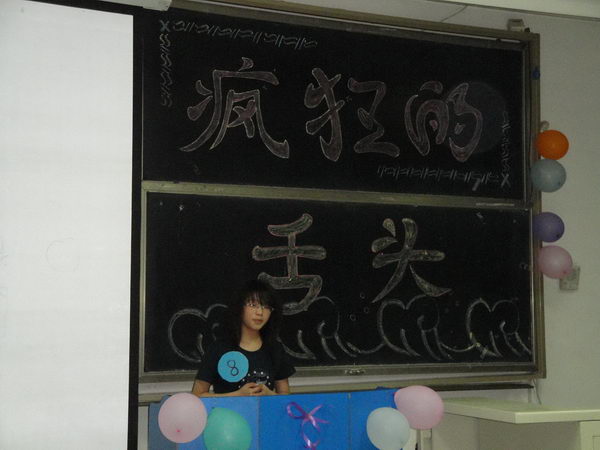 疯狂的
舌头
8